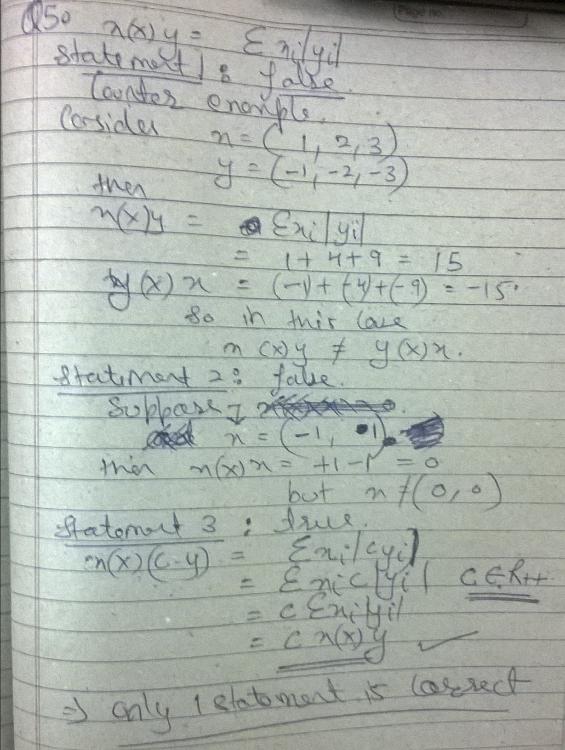 Q50 x(x) y = Σ xi|yi|
Statement 1 : false.
Counter example.
Consider x = (1, 2, 3)
y = (-1, -2, -3)
then
x(x)y = Σxi|yi|
= 1+4+9 = 15
y(x)x = (-1)+(-4)+(-9) = -15.
So in this case
x(x)y ≠ y(x)x.
Statement 2: false.
Suppose
x = (-1, 1).
then x(x)x = +1-1 = 0
but x ≠ (0,0)
Statement 3 : true.
x(x)(c-y) = Σxi|cyi|
= Σxic|yi| C∈R++
= cΣxi|yi|
= c x(x)y ✓
⇒ only 1 statement is correct